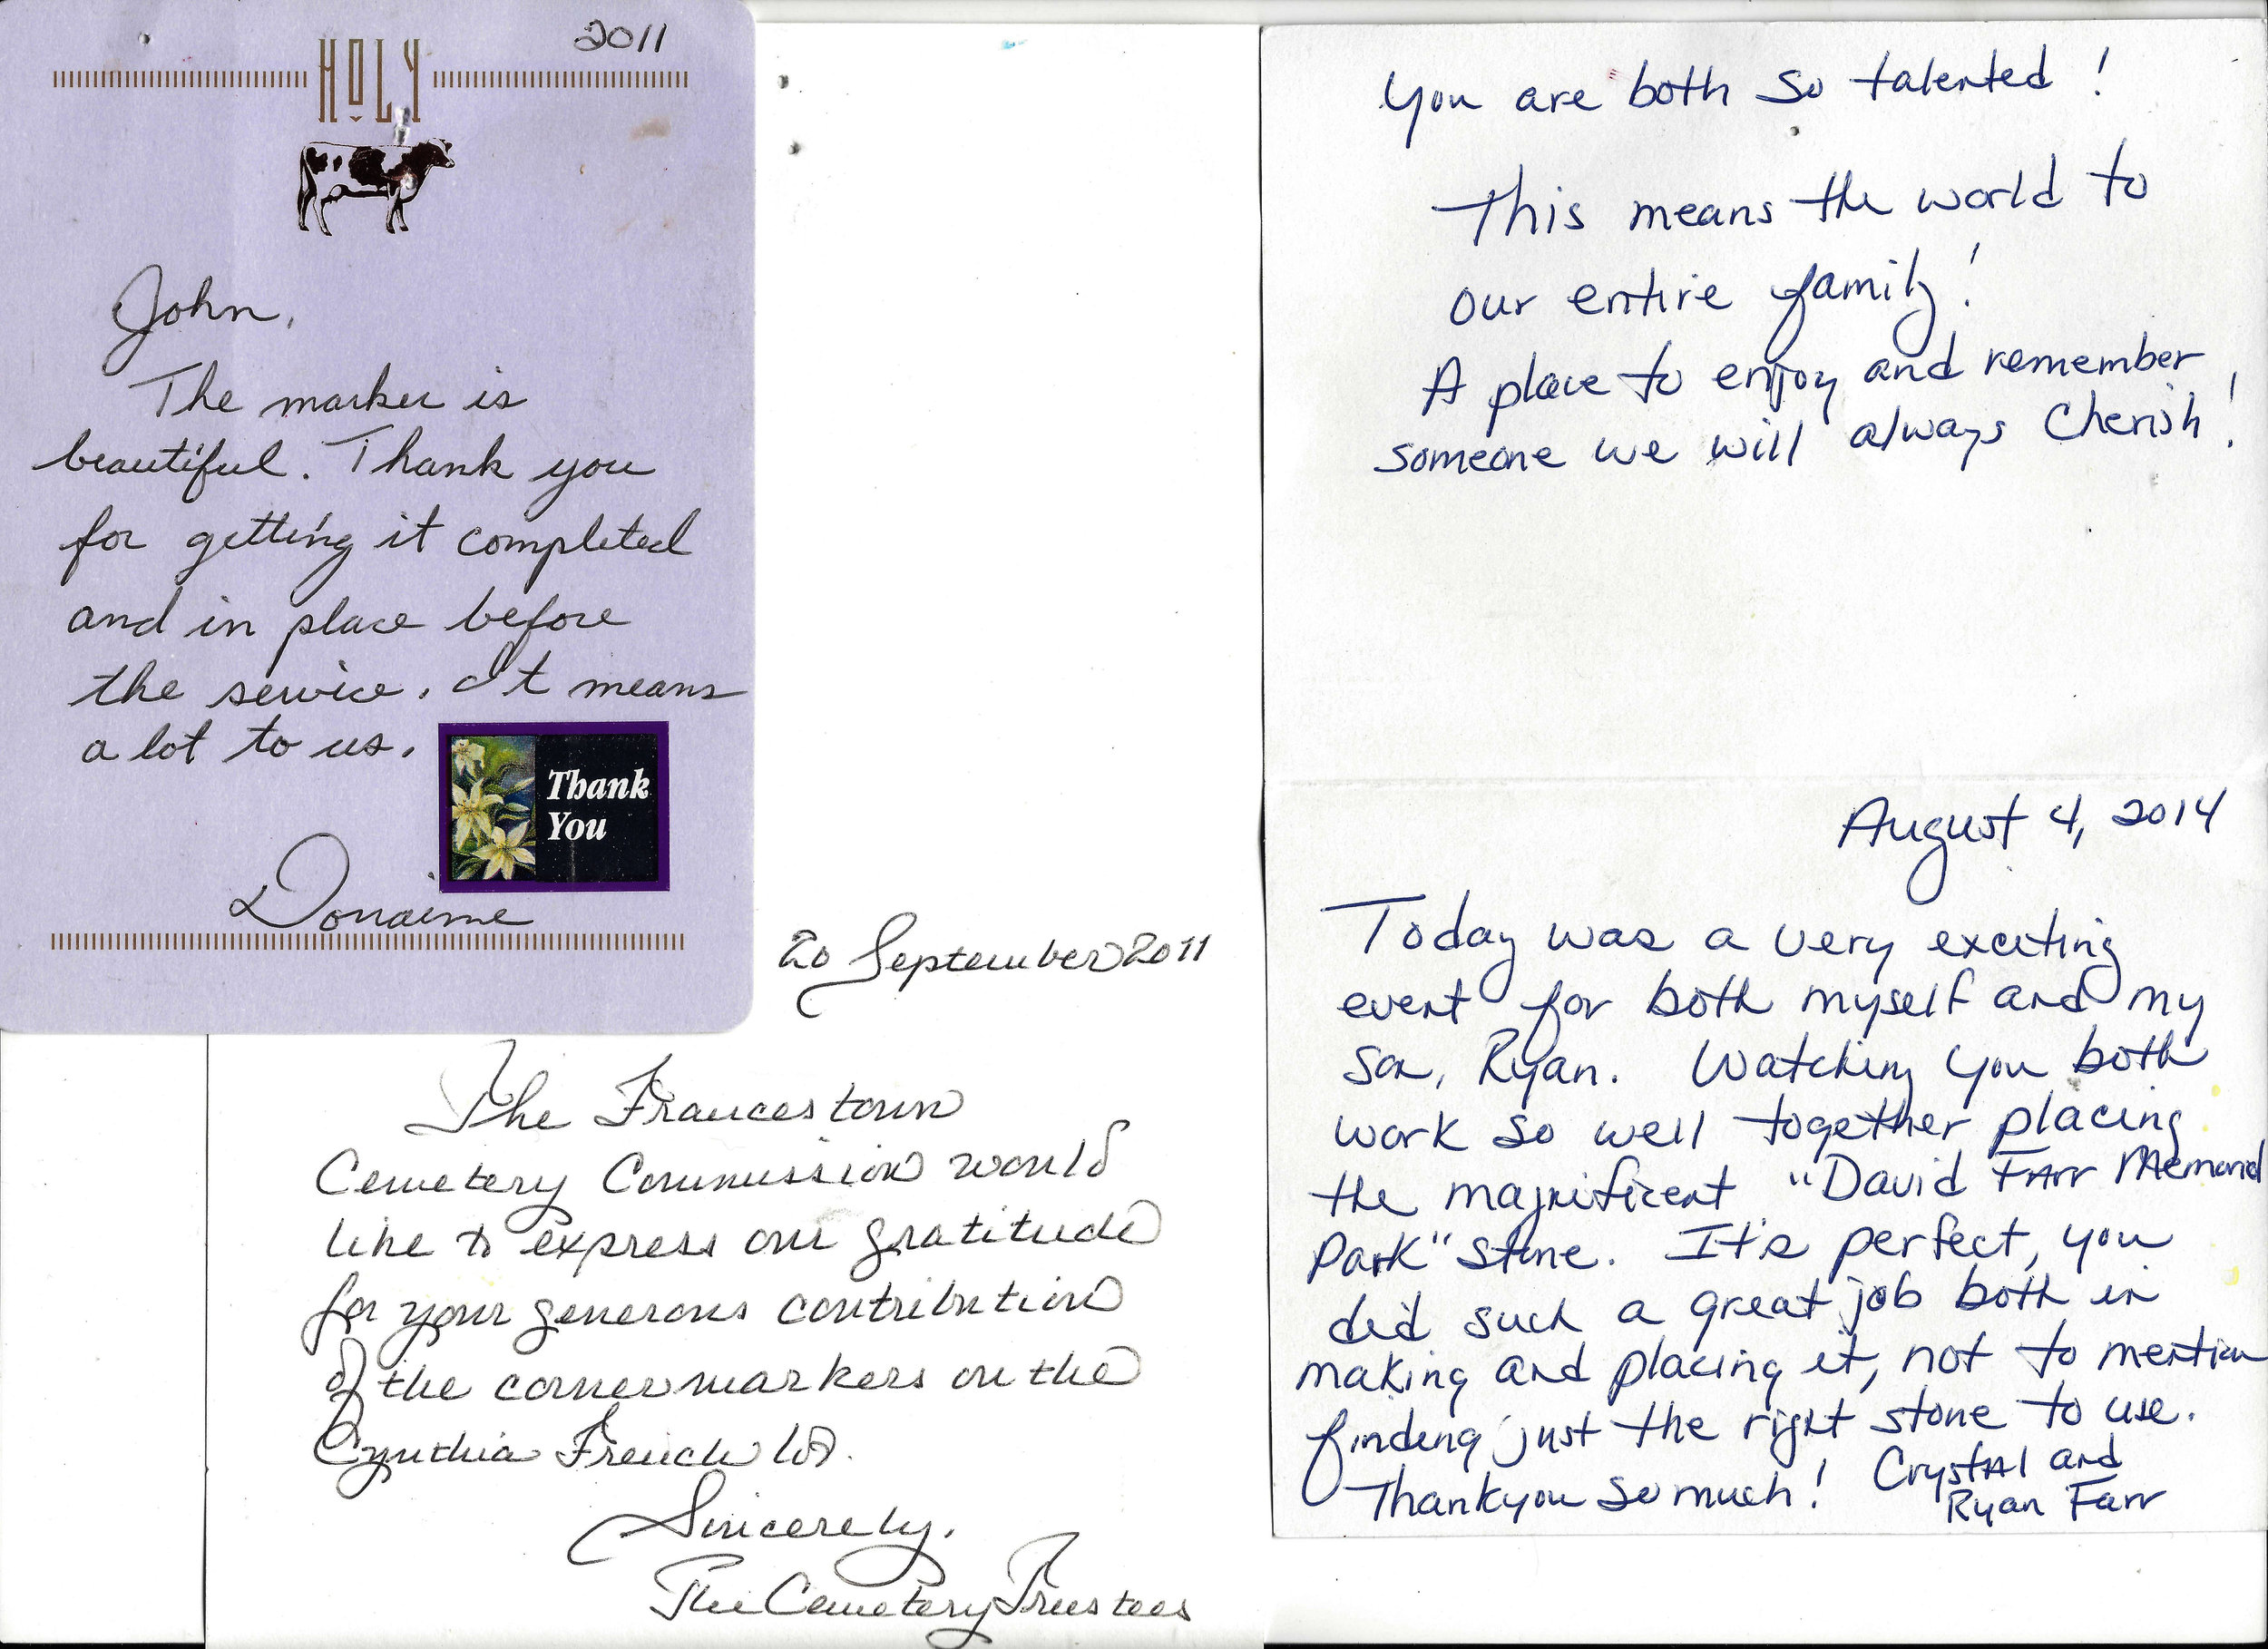 2011
HOLY
John,
The marker is
beautiful. Thank you
for getting it completed
and in place before
the service. It means
a lot to us.
Thank
You
20 September 2011
The Francestown
Cemetery Commission would
like to express our gratitude
for your generous contribution
of the corner markers on the
Cynthia French lot.
Sincerely,
The Cemetery Trustees
You are both so talented!
This means the world to
our entire family!
A place to enjoy and remember
someone we will always cherish!
August 4, 2014
Today was a very exciting
event for both myself and my
son, Ryan. Watching you both
work so well together placing
the magnificent "David Farr Memorial
Park" stone. It's perfect, you
did such a great job both in
making and placing it, not to mention
finding just the right stone to use.
Thankyou so much! Crystal and
Ryan Farr